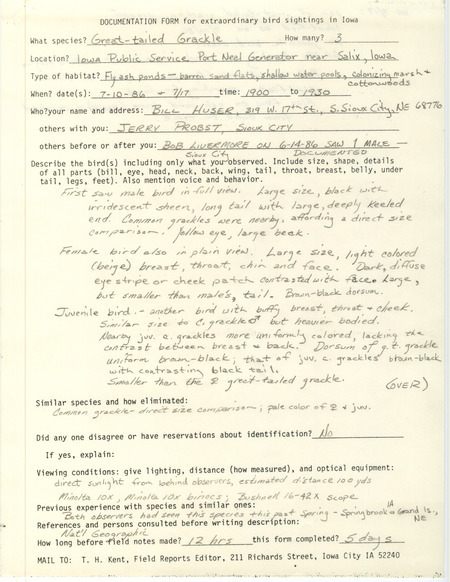 DOCUMENTATION FORM for extraordinary bird sightings in Iowa
What species? Great-tailed Grackle How many? 3
Location? Iowa Public Service Port Neal Generator near Salix, Iowa
Type of habitat? Fly ash ponds - barren sand flats, shallow water pools, colonizing marsh + cottonwoods
When? date(s): 7-10-86 + 7/17 time: 1900 to 1930
Who? your name and address: BILL HUSER, 219 W. 17th St., S. Sioux City, NE 68776
others with you: JERRY PROBST, SIOUX CITY
others before or after you: BOB LIVERMORE ON 6-14-86 SAW 1 MALE -
Sioux City DOCUMENTED
Describe the bird(s) including only what you observed. Include size, shape, details
of all parts (bill, eye, head, neck, back, wing, tail, throat, breast, belly, under
tail, legs, feet). Also mention voice and behavior.
First saw male bird in full view. Large size, black with
irridescent sheen, long tail with large, deeply keeled
end. Common grackles were nearby, affording a direct size
comparison. Yellow eye, large beak.
Female bird also in plain view. Large size, light colored
(beige) breast, throat, chin and face. Dark, diffuse
eye stripe or cheek patch contrasted with face. Large,
but smaller than male's, tail. Brown-black dorsum.
Juvenile bird - another bird with buffy breast, throat + cheek.
Similar size to C. grackle ♂ but heavier bodied.
Nearby juv. c. grackles more uniformly colored, lacking the
contrast between breast & back. Dorsum of g.t. grackle
uniform brown-black; that of juv. c. grackles brown-black
with contrasting black tail.
Smaller than the ♀ great-tailed grackle.
(OVER)
Similar species and how eliminated:
Common grackle - direct size comparison; pale color of ♀ + juv.
Did any one disagree or have reservations about identification? No
If yes, explain:
Viewing conditions: give lighting, distance (how measured), and optical equipment:
direct sunlight from behind observers, estimated distance 100 yds
Minolta 10x, Minolta 10x binocs; Bushnell 16-42x scope
Previous experience with species and similar ones:
Both observers had seen this species this past Spring - Springbrook IA + Grand Is., NE
References and persons consulted before writing description:
Nat'l Geographic
How long before field notes made? 12 hrs this form completed? 5 days
MAIL TO: T. H. Kent, Field Reports Editor, 211 Richards Street, Iowa City IA 52240